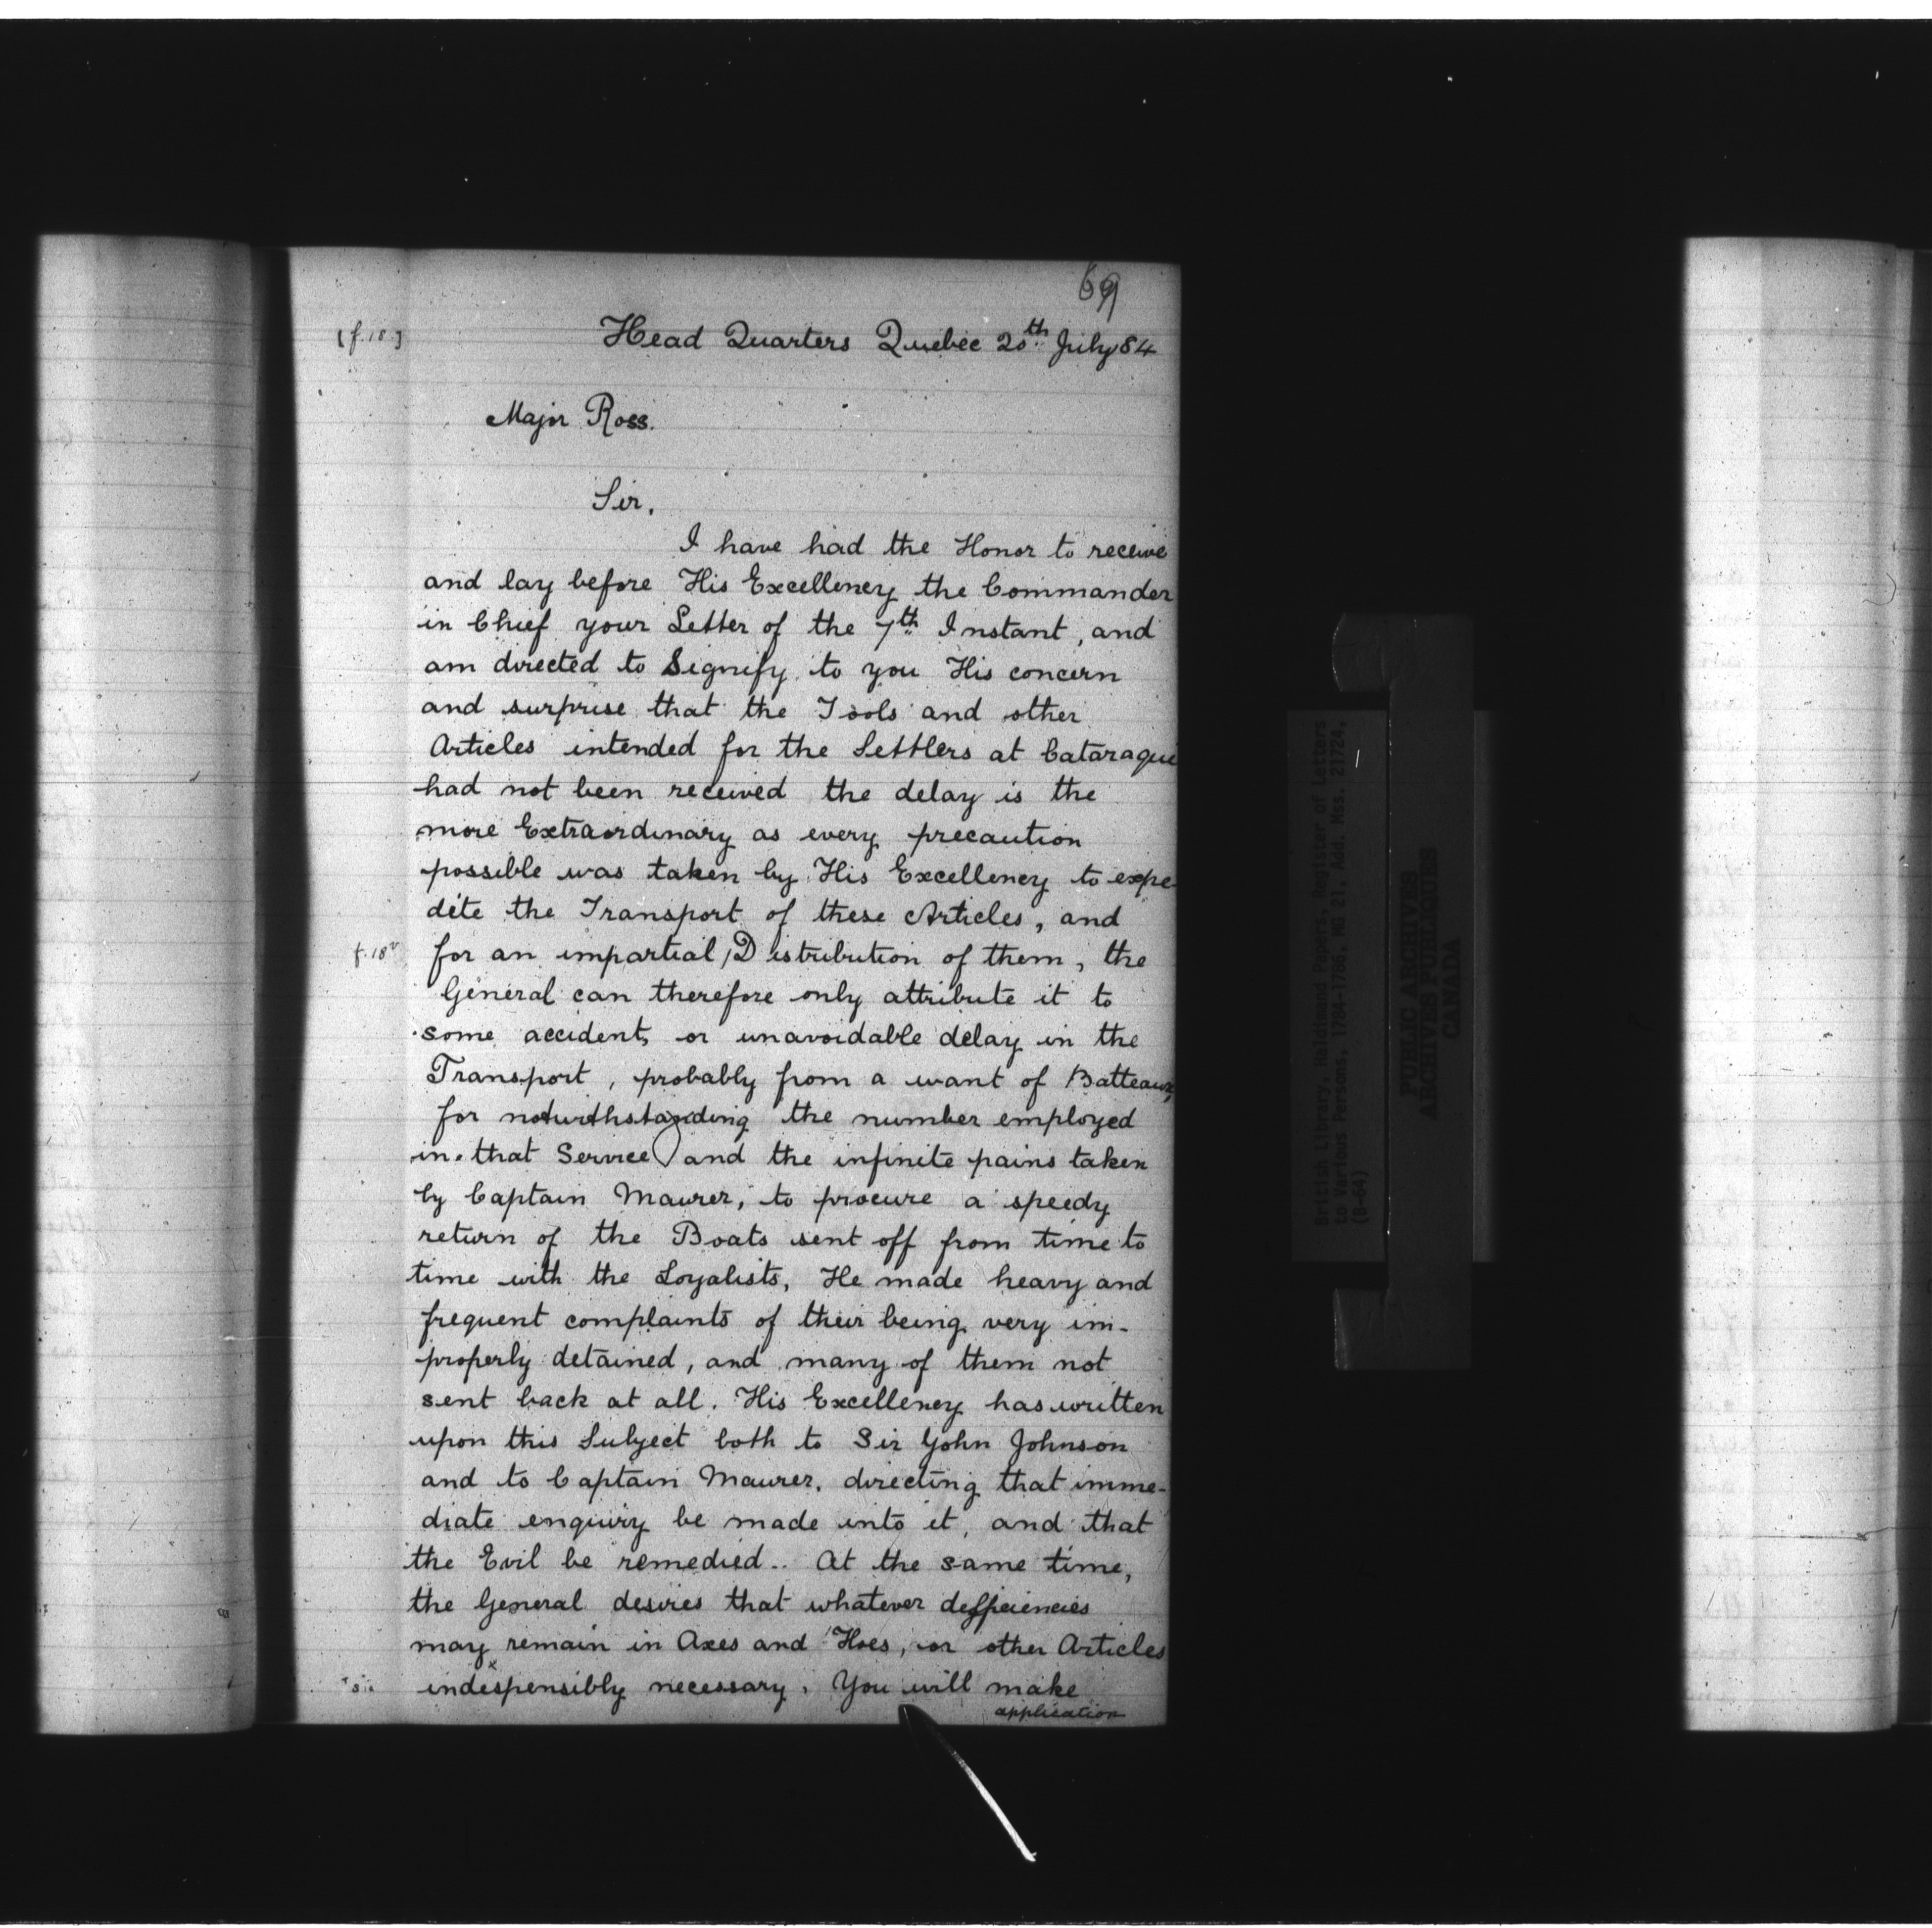 69
[f.18.] Head Quarters Quebec 20th July 84
Major Ross.
Sir,
I have had the Honor to receive
and lay before His Excellency the Commander
in Chief your Letter of the 7th Instant, and
am directed to Signify to you His concern
and surprise that the Tools and other
Articles intended for the Settlers at Cataraqui
had not been received the delay is the
more Extraordinary as every precaution
possible was taken by His Excellency to expe-
dite the Transport of these Articles, and
f.18v for an impartial / Distribution of them, the
General can therefore only attribute it to
some accident, or unavoidable delay in the
Transport, probably from a want of Batteaux,
for notwithstanding the number employed
in that Service and the infinite pains taken
by Captain Maurer, to procure a speedy
return of the Boats sent off from time to
time with the Loyalists, He made heavy and
frequent complaints of their being very im-
properly detained, and many of them not
sent back at all. His Excellency has written
upon this Subject both to Sir John Johnson
and to Captain Maurer, directing that imme-
diate enquiry be made into it, and that
the Evil be remedied.. At the same time,
the General desires that whatever defficiencies
may remain in Axes and Hoes, or other Articles
x sic indespensibly necessary, You will make
application
British Library, Haldimand Papers, Register of Letters
to Various Persons, 1784-1786, MG 21, Add. Mss. 21724,
(B-64)
PUBLIC ARCHIVES
ARCHIVES PUBLIQUES
CANADA